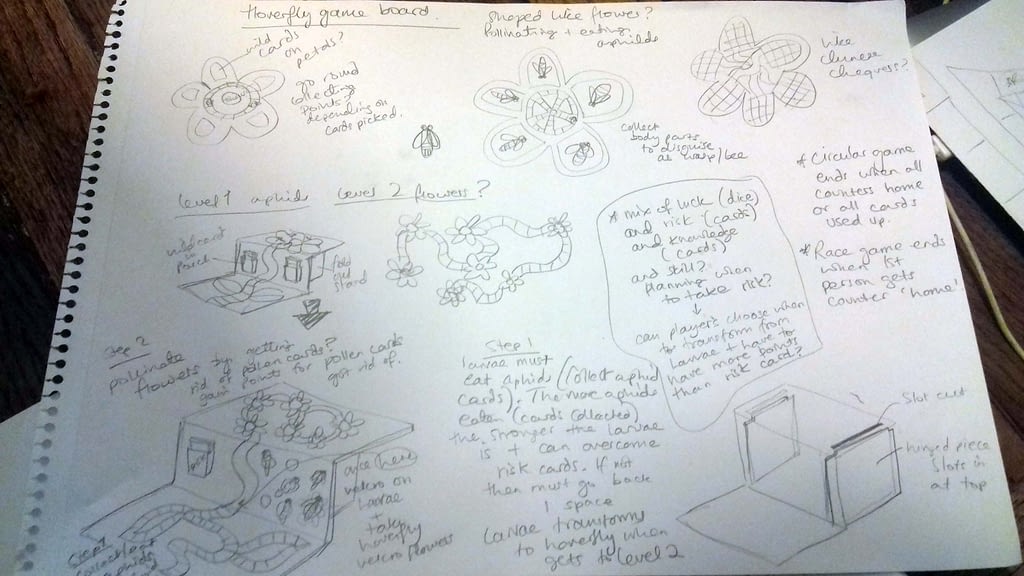 Hoverfly game board.
wild cards
on
petals?
go round
collecting
points
depending on
cards picked.
shaped like flower?
Pollinating + eating
aphids
collect
body parts
to disguise
as wasp/bee
like
chinese
chequers?
Level 1 aphid
Level 2 flowers?
wild card
in
fold
stand
* mix of luck (dice)
and risk (cards)
and knowledge
(cards)
and skill?
planning when
to take risk?
can players choose when
to transform from
larvae + have to
have more points
than risk card?
* Circular game
ends when all
counters home
or all cards
used up.
* Race game ends
when 1st
person gets
counter 'home'
Step 2
pollinate
flowers by getting
rid of pollen cards?
gain points for pollen cards
got rid of.
Step 1
larvae must
eat aphids (collect aphid
cards). The more aphids
eaten (cards collected)
the stronger the larvae
is + can overcome
risk cards. If not
then must go back
1 space
Larvae transforms
to hoverfly when
gets to level 2
here
velcro on
larvae
+
take
hoverfly
velcro flowers
Step 1
collect
aphids
Slot card
hinged piece
slots in
at top